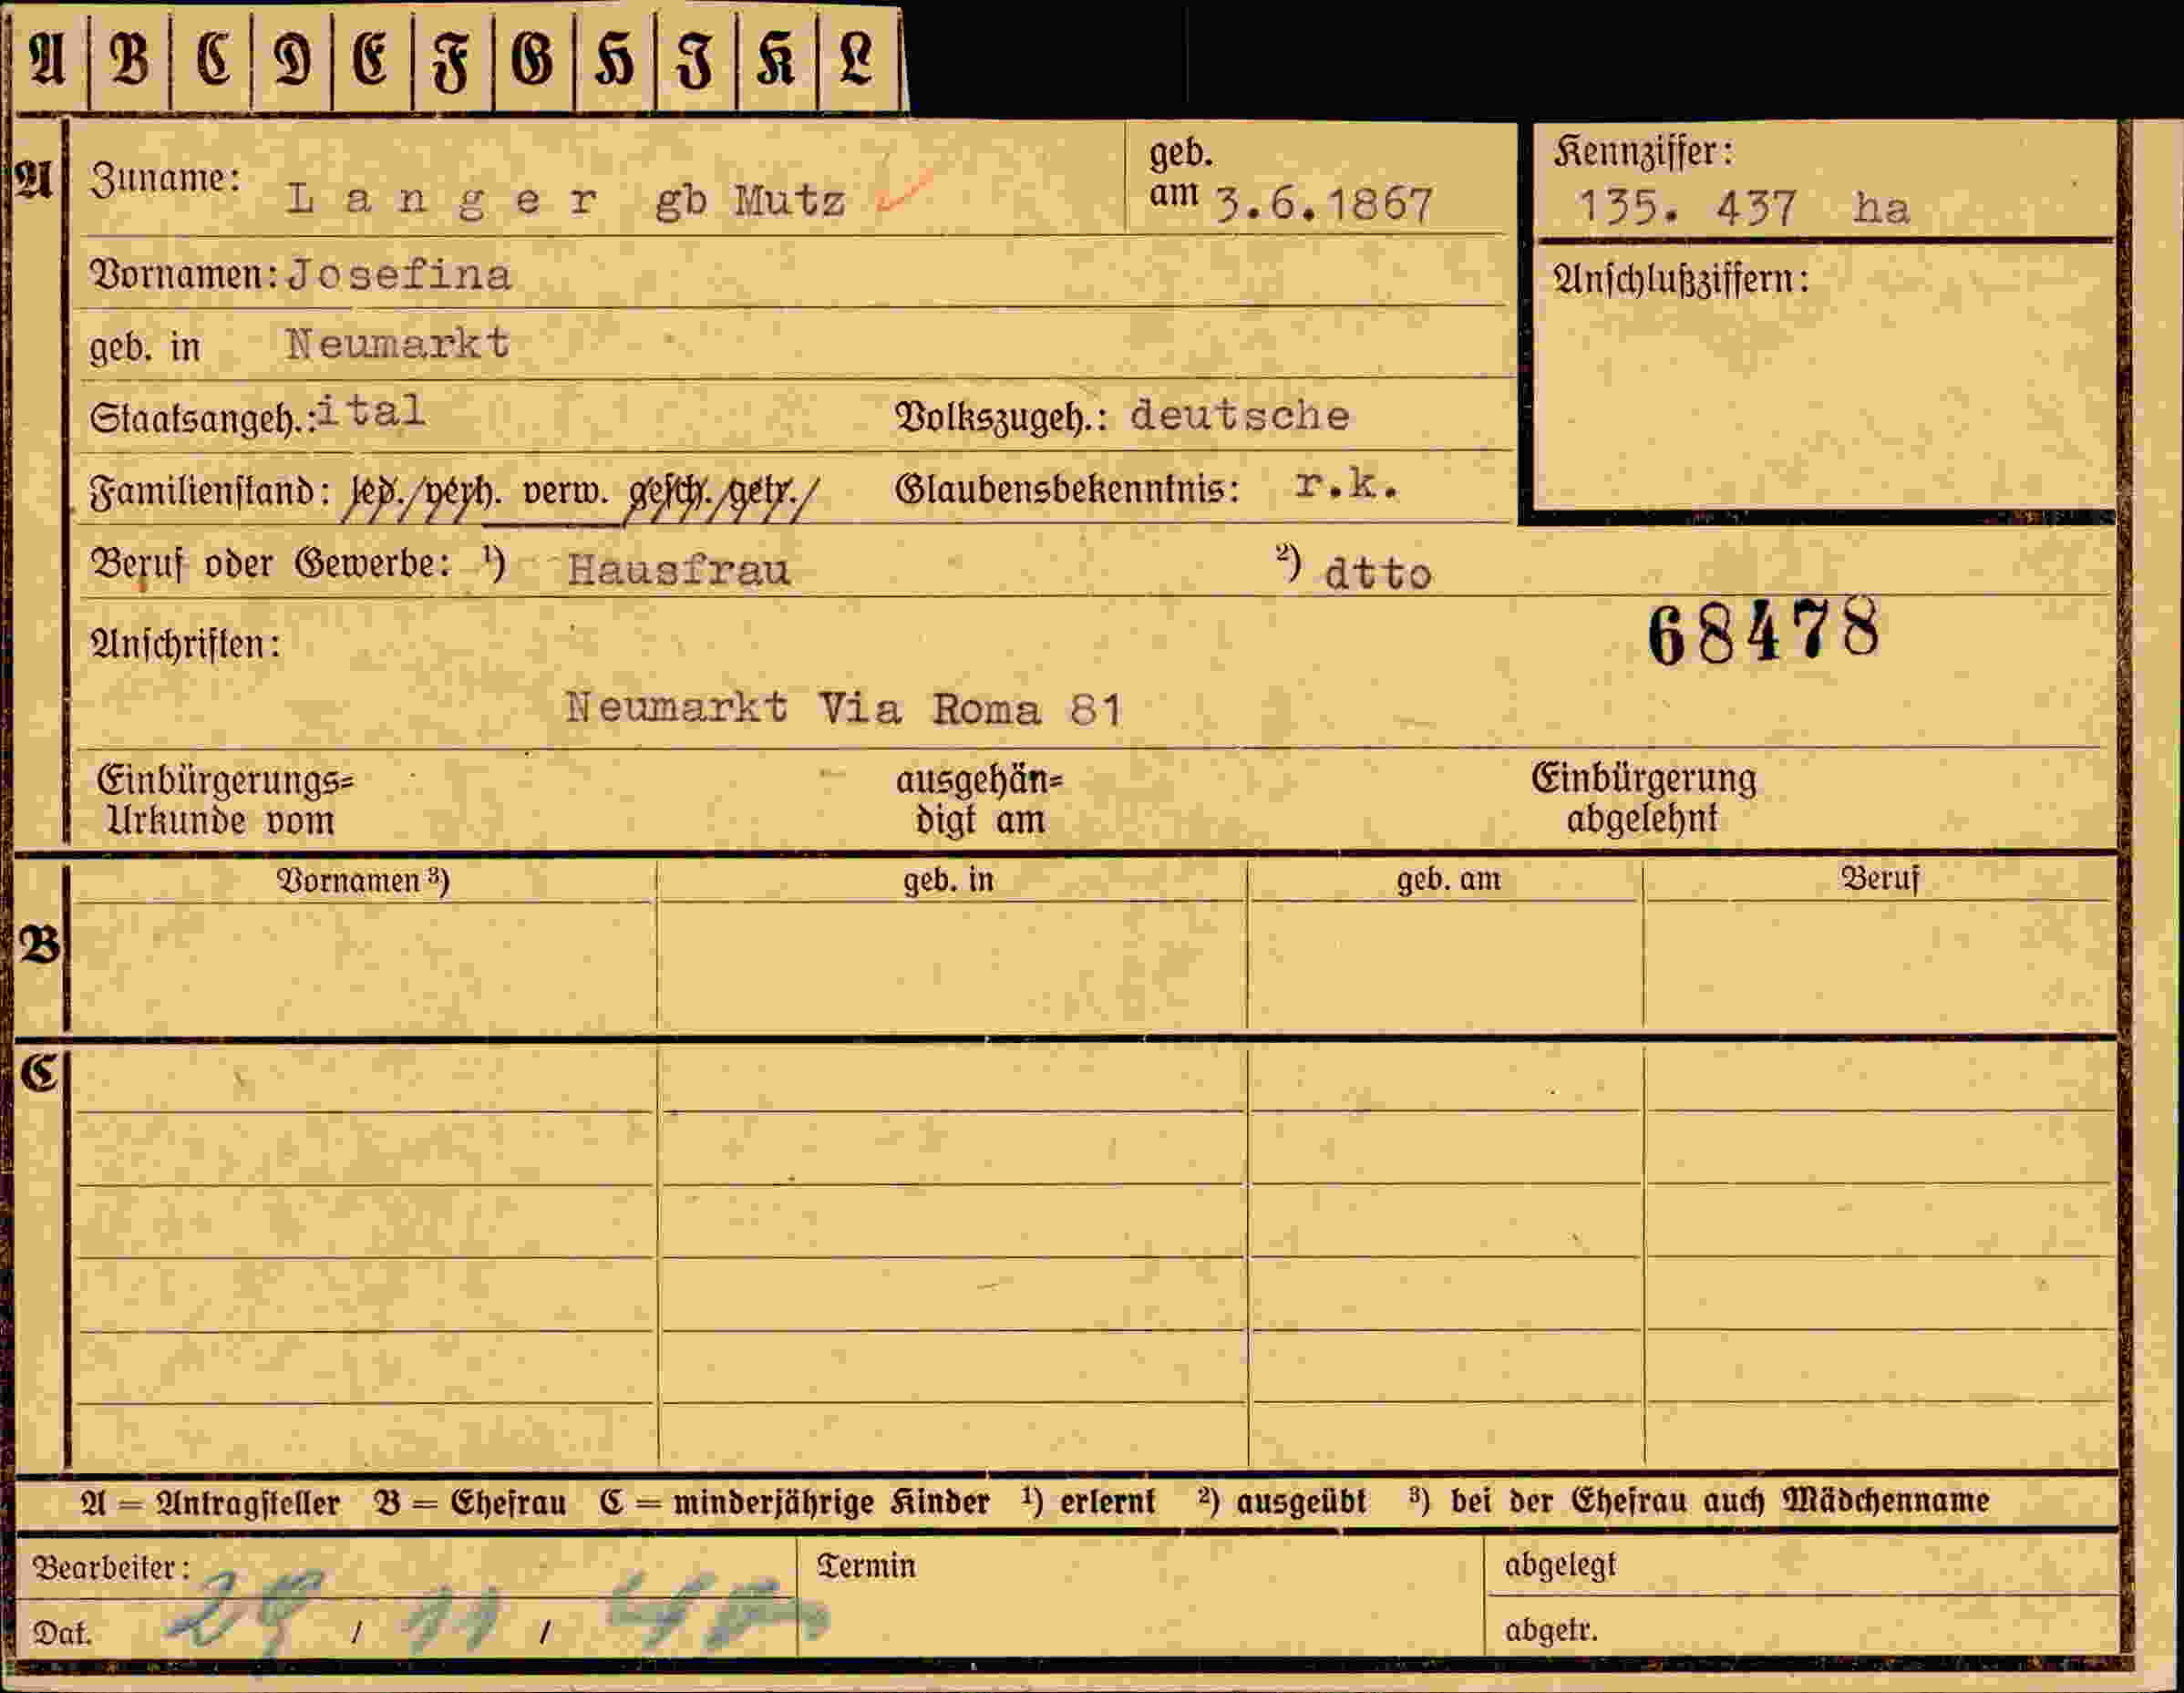 A B C D E F G H J K L
A Zuname: Langer gb Mutz geb. am 3.6.1867 Kennziffer: 135. 437 ha
Vornamen: Josefina Anschlußziffern:
geb. in Neumarkt
Staatsangeh.: ital Volkszugeh.: deutsche
Familienstand: led./verh. verw. gesch./getr./ Glaubensbekenntnis: r.k.
Beruf oder Gewerbe: ¹) Hausfrau ²) dtto
68478
Anschriften:
Neumarkt Via Roma 81
Einbürgerungs= ausgehän= Einbürgerung
Urkunde vom digt am abgelehnt
Vornamen ³) geb. in geb. am Beruf
B
C
A = Antragsteller B = Ehefrau C = minderjährige Kinder ¹) erlernt ²) ausgeübt ³) bei der Ehefrau auch Mädchenname
Bearbeiter: Termin abgelegt
Dat. / 11 / abgetr.